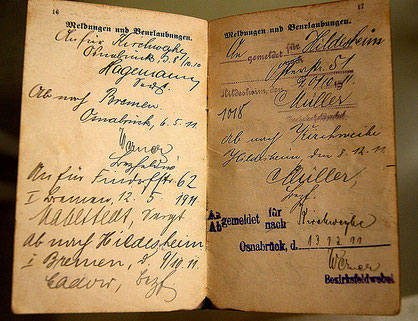 16
Meldungen und Beurlaubungen.
An für Kirchweyhe
Osnabrück, 3.8.10
Hagemann
Ab nach Bremen.
Osnabrück, 6.5.11
Werner
An für Findorffstr. 62
I Bremen, 12.5 1911
Mahlstedt, Sergt
Ab nach Hildesheim,
I Bremen, d. 9/10.11
Gadow,
17
Meldungen und Beurlaubungen.
An gemeldet für Hildesheim
51
Hildesheim, den
Müller
1018
Bezirksfeldwebel
Ab nach Kirchweihe
Hildesheim, den 8.12.11.
Müller
An
Ab gemeldet für
nach Kirchweyhe
Osnabrück, d. 13.12.11
Werner
Bezirksfeldwebel